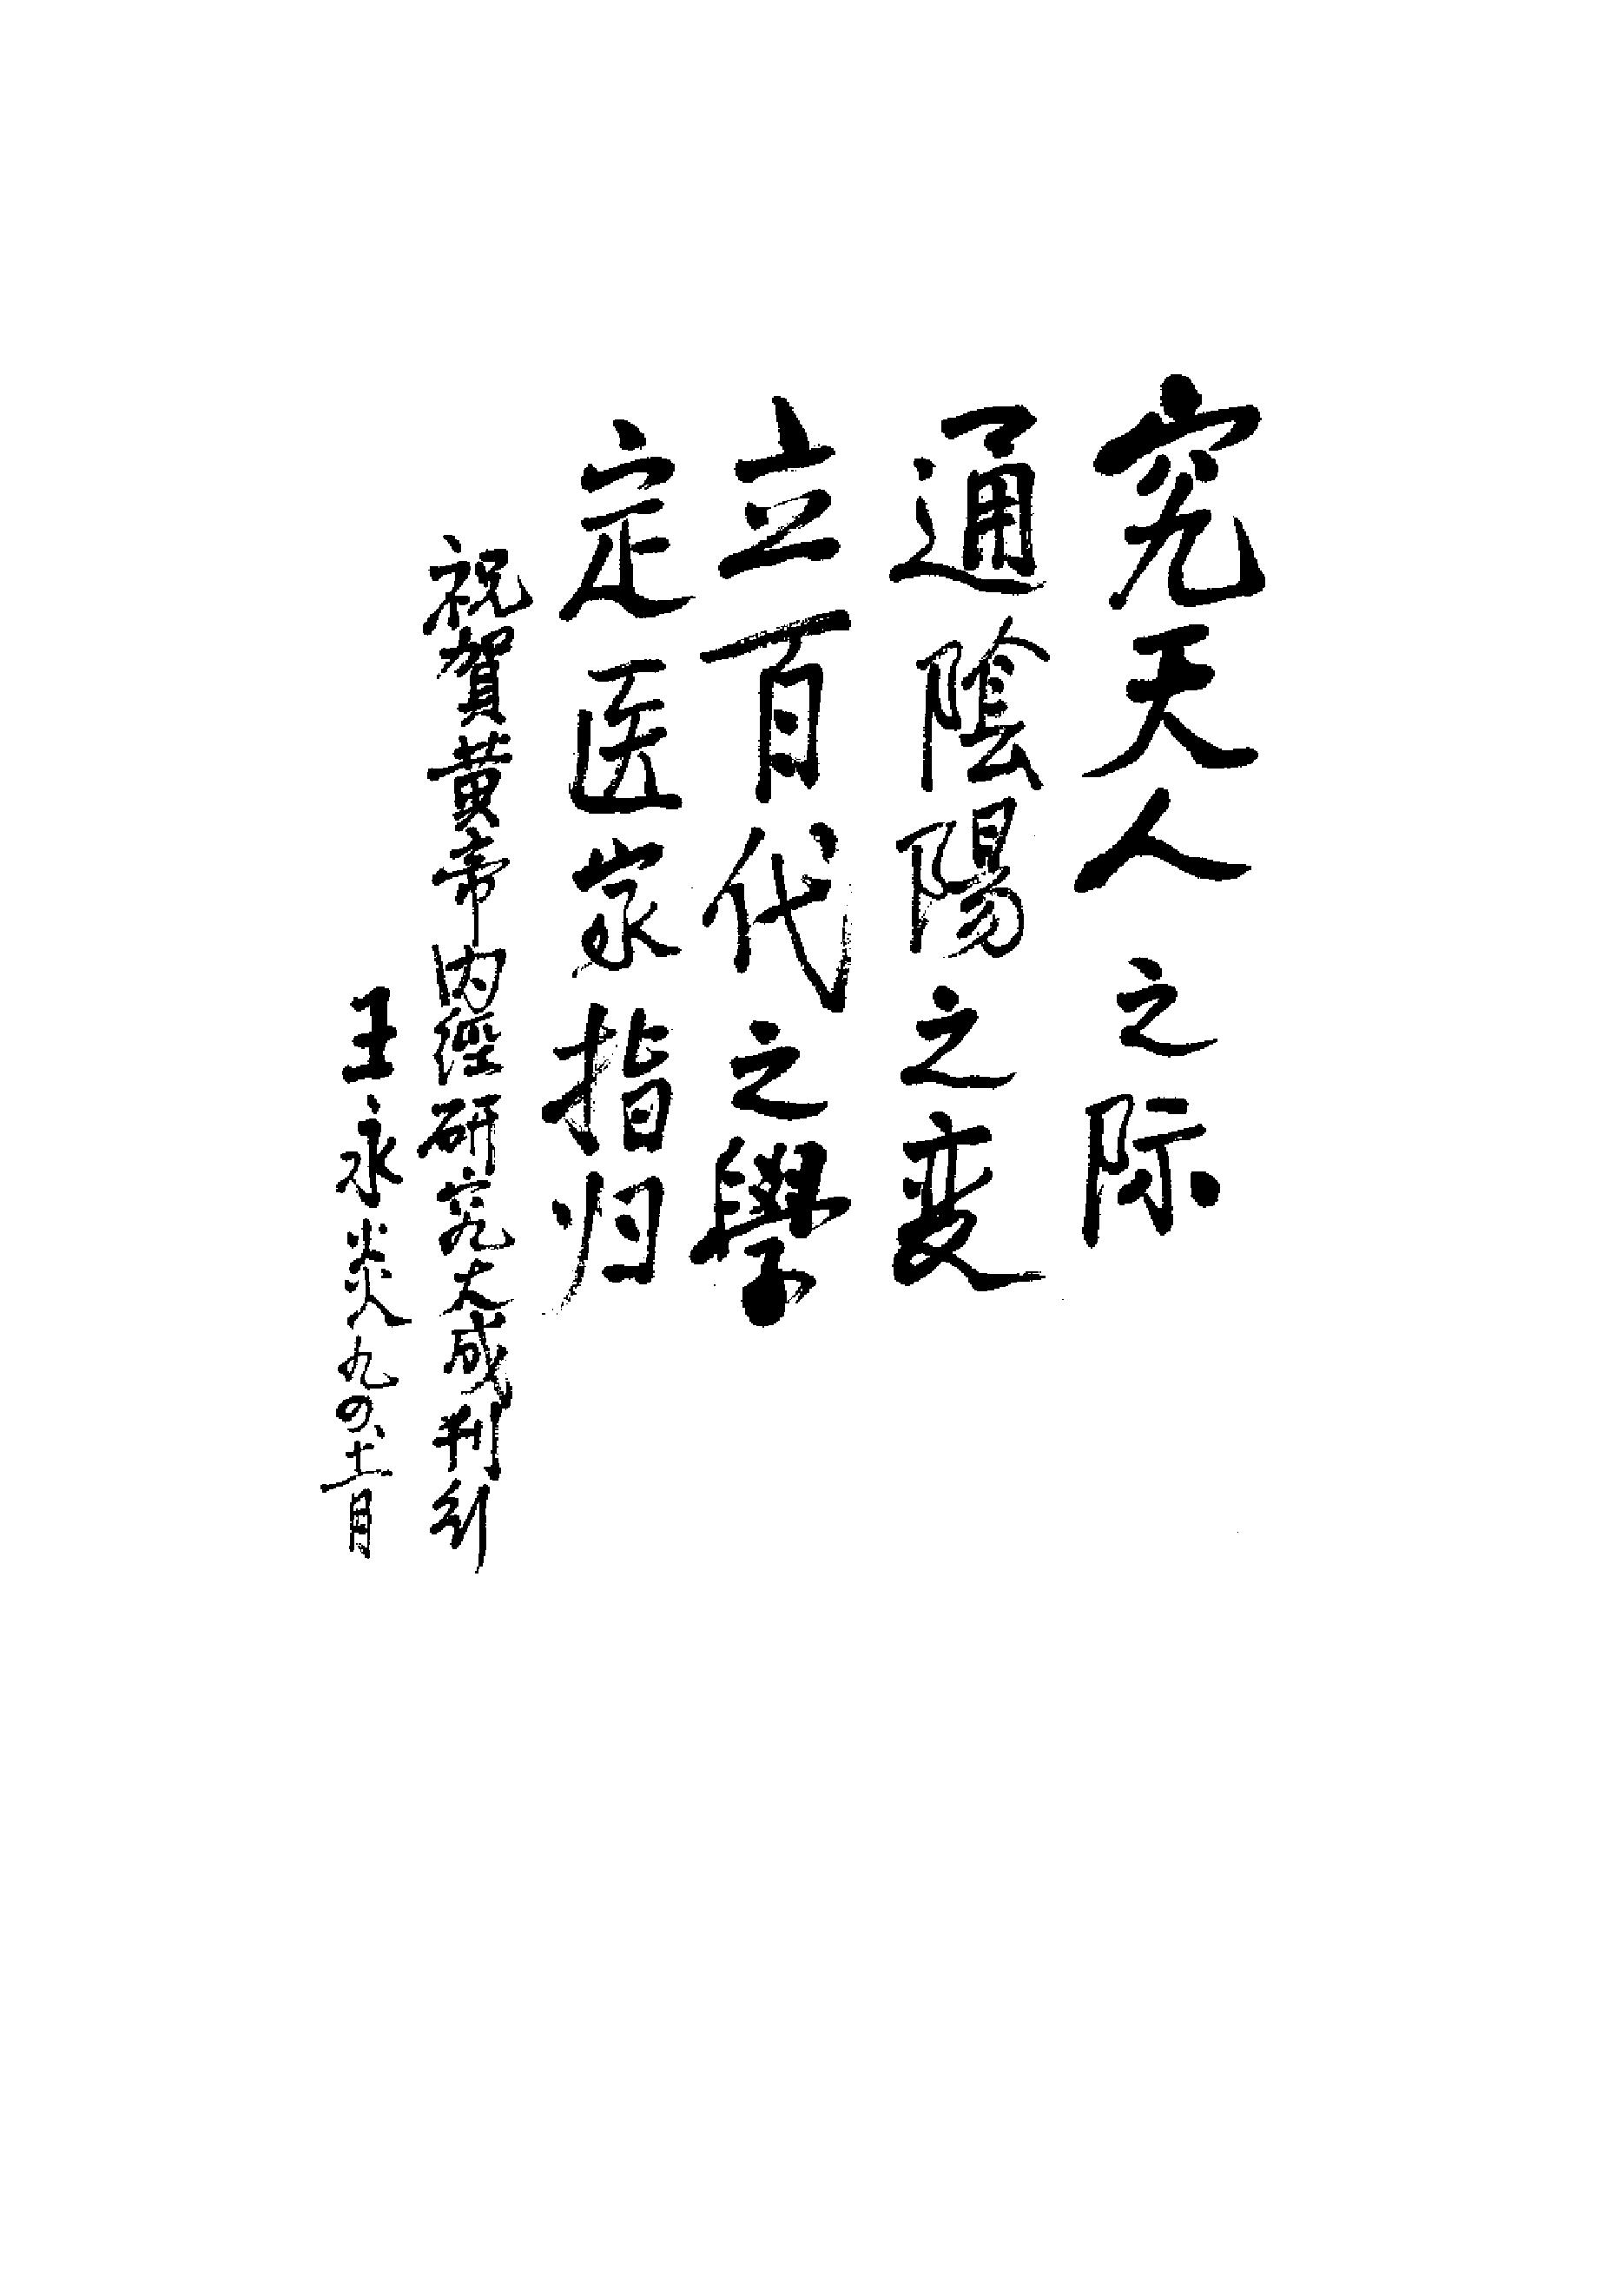 究天人之际
通陰陽之变
立百代之學
定医家指归
祝賀黄帝内經研究大成刊行
王永炎九四、十一月